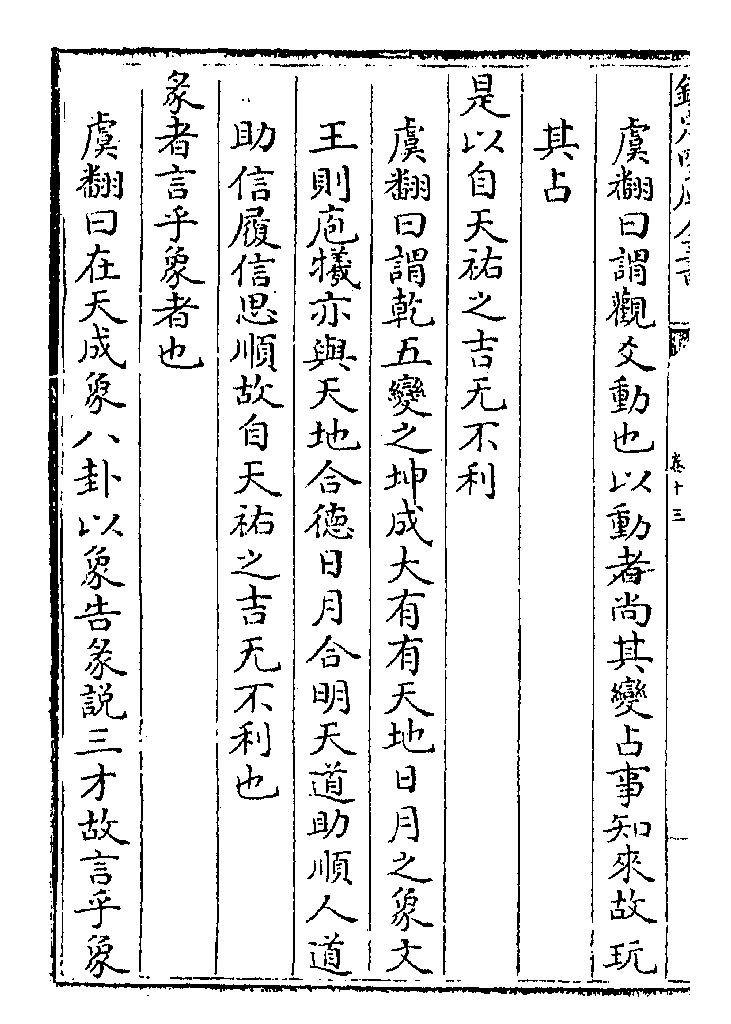 欽定四庫全書
卷十三
虞翻曰謂觀爻動也以動者尚其變占事知來故玩
其占
是以自天祐之吉无不利
虞翻曰謂乾五變之坤成大有有天地日月之象文
王則庖犧亦與天地合德日月合明天道助順人道
助信履信思順故自天祐之吉无不利也
彖者言乎象者也
虞翻曰在天成象八卦以象告彖說三才故言乎象